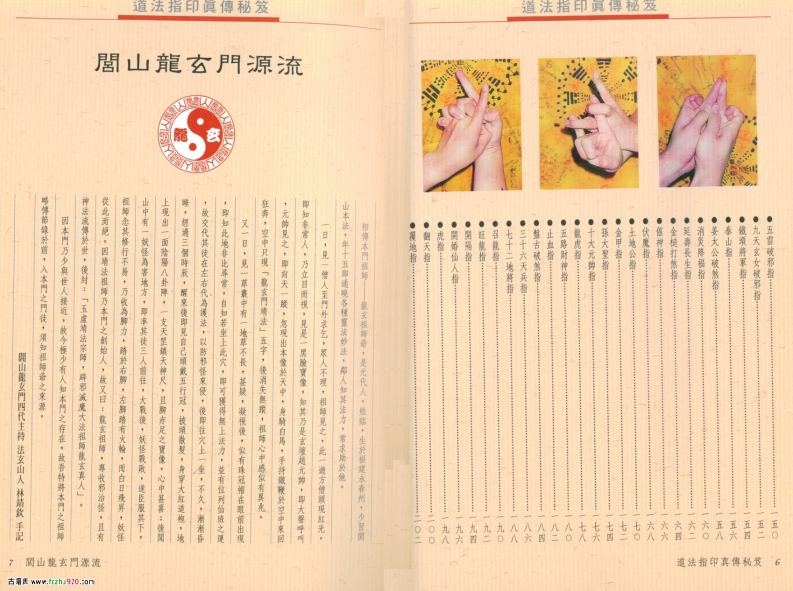 道法指印眞傳秘笈
五雷破邪指 五〇
九天玄女破邪指 五二
鐵頭將軍指 五四
泰山指 五六
姜太公破煞指 五八
消災降福指 六〇
延壽長生指 六二
金槌打煞指 六四
催神指 六六
伏魔指 六八
土地公指 七〇
金甲指 七二
孫大聖指 七四
十大元帥指 七六
龍虎指 七八
五路財神指 八〇
止血指 八二
盤古破煞指 八四
三十六天兵指 八六
七十二地將指 八八
召龍指 九〇
雙龍指 九二
開陽指 九四
開婚仙人指 九六
虎指 九八
翻天指 一〇〇
覆地指 一〇二
道法指印真傳秘笈 6
道法指印眞傳秘笈
閭山龍玄門源流
龍玄
相傳本門祖師 龍玄祖師爺，是元代人，姓 ，生於福建永春州，少習閭
山本法，年十五即通曉各種靈法妙法，鄰人知其法力，常求助於他。
一日，見一僧人至門外求乞，眾人不理，祖師見之，此一遊方僧頭現紅光，
即知非常人，乃立目而視，見是一黑臉寶像，如其乃是玄壇趙元帥，即大聲呼叫
，元帥見之，即向天一蹤，忽現出本像於天中，身騎白馬，手持鐵鞭於空中來回
狂奔，空中只現「龍玄門靖法」五字，後消失無蹤，祖師心中感似有異兆。
又一日，見一草叢中有一地草不長，甚疑，凝視後，似有珠冠帽在眼前出現
，即知此地非比尋常，自知若坐上此穴，即可獲得無上法力，並有位列仙班之運
，故交代其徒在左右代為護法，以防邪怪來侵，後即往穴上一坐，不久，漸漸昏
睡，經過三個時辰，醒來後即見自己頭戴五行冠，披頭散髮，身穿大紅道袍，地
上現出一面陰陽八卦陣，一支天罡鎮天神尺，且腳赤足之寶像，心中甚喜；後聞
山中有一妖怪為害地方，即率其徒三人前往，大戰後，妖怪戰敗，遂臣服其下，
祖師念其修行不易，乃收為腳力，踏於右腳，左腳踏有火輪，而白日飛昇，妖怪
從此而絕。因靖法祖師乃本門之創始人，故又曰：龍玄祖師，專收邪治怪，且有
神法流傳於世，後封：「玉虛靖法宗師，辟邪滅魔大法祖師龍玄真人」。
因本門乃少與世人接近，故今極少有人知本門之存在，故吾特將本門之祖師
略傳節錄於前，入本門之門徒，須知祖師爺之來源。
閭山龍玄門四代主持 法玄山人 林靖欽 手記
7 閭山龍玄門源流
古籍库 www.fczhu920.com